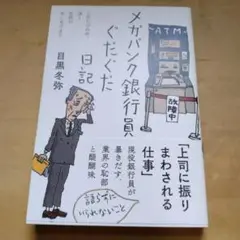 メガバンク銀行員
ぐだぐだ
日記
目黒冬弥
ATM
故障中
「上司に振り
まわされる
仕事」
現役銀行員が
暴きだす、
業界の恥部
と醍醐味
語らずに
いられないこと